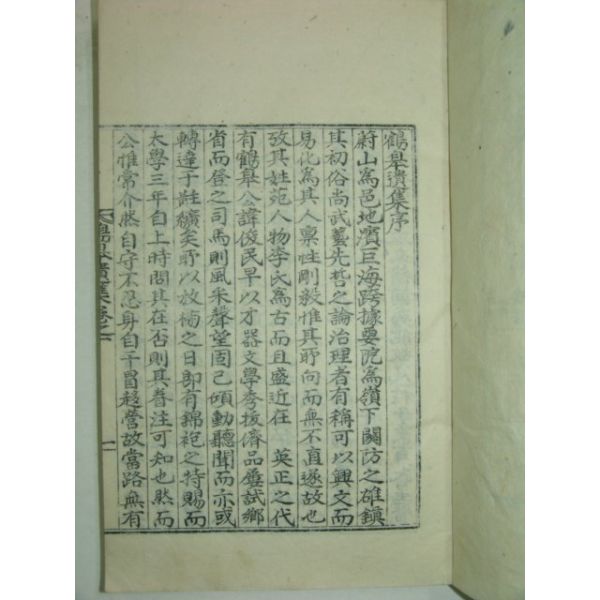 鶴皐遺集序
蔚山爲邑地濱巨海蹯據要阨爲嶺下關防之雄鎭
其初俗尚武藝先哲之論治理者有稱可以興文而
易化爲其人禀性剛毅惟其所向而無不直遂故也
攷其姓苑人物李氏爲古而且盛近在 英正之代
有鶴皐公諱俊民早以才器文學秀拔儕品屢試鄕
省而登之司馬則風采聲望固已傾動聽聞而亦或
轉達于黈纊矣所以放榜之日卽有錦袍之特賜而
太學三年自上時問其在否則其眷注可知也然而
公惟常介然自守不忍身自干冒經營故當路無有
鶴皐遺集卷之一
一